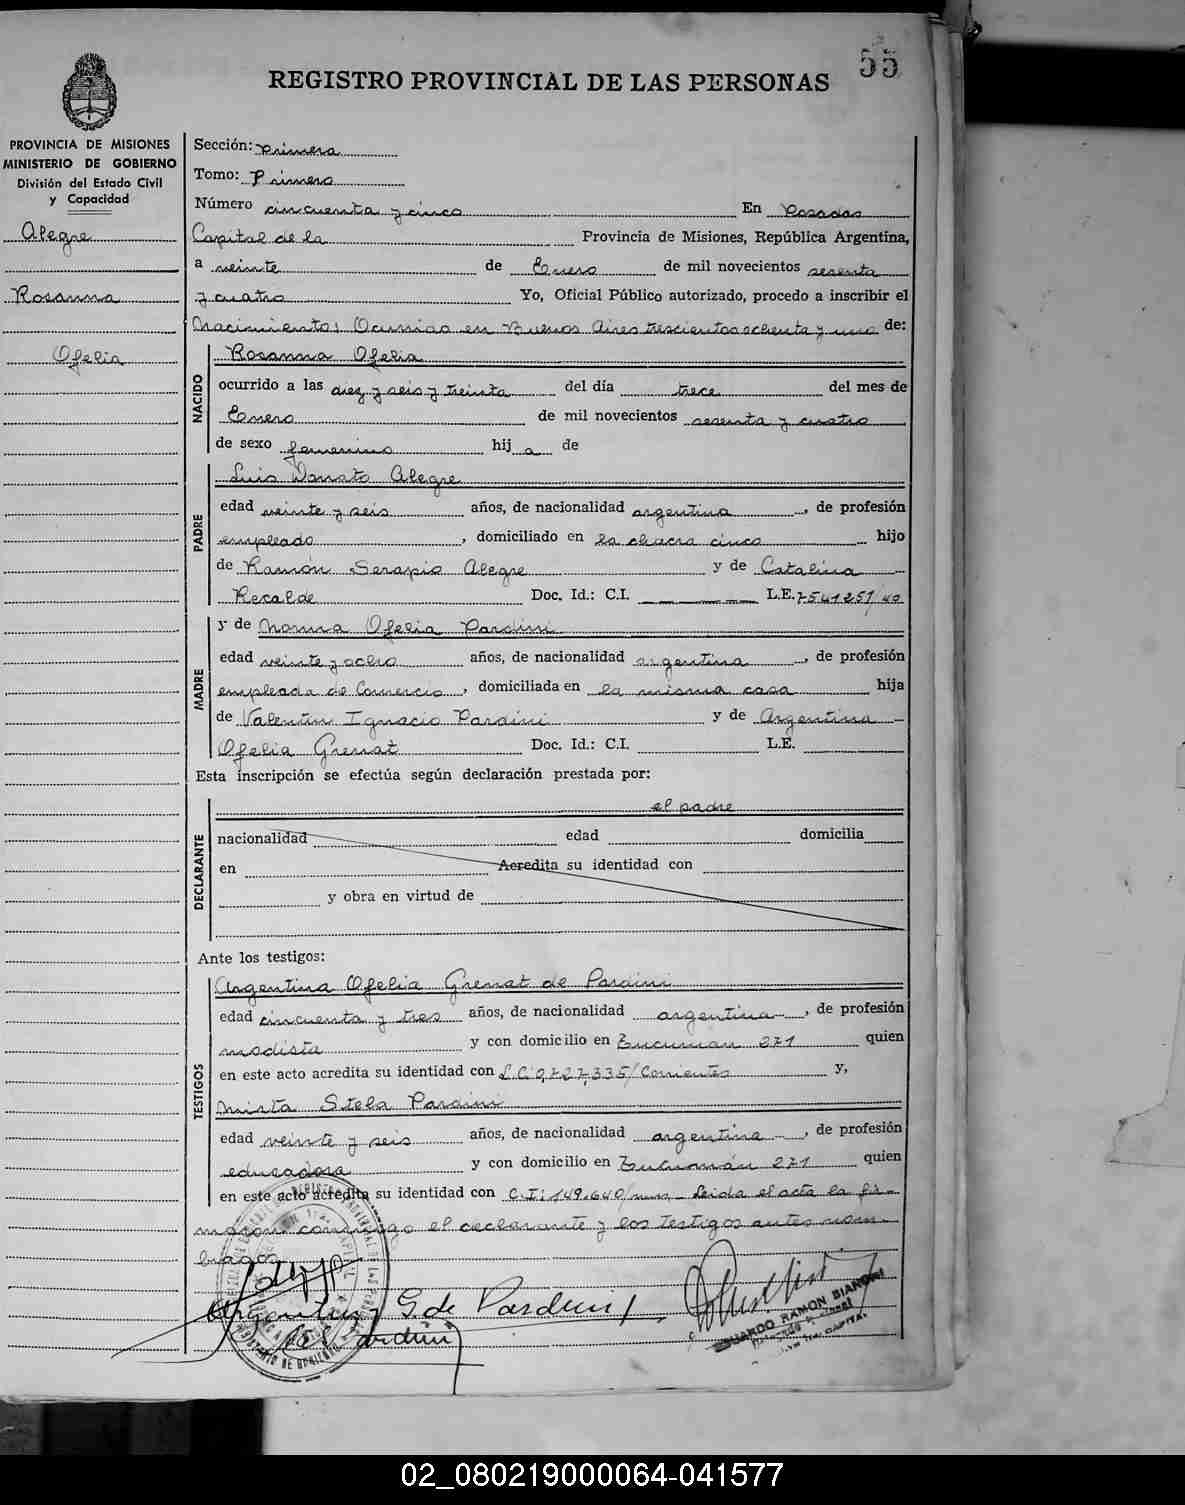 55
REGISTRO PROVINCIAL DE LAS PERSONAS
PROVINCIA DE MISIONES
MINISTERIO DE GOBIERNO
División del Estado Civil
y Capacidad
Alegre
Rosanna
Ofelia
Sección: Primera
Tomo: Primero
Número cincuenta y cinco En Posadas
Capital de la Provincia de Misiones, República Argentina,
a veinte de Enero de mil novecientos sesenta
y cuatro Yo, Oficial Público autorizado, procedo a inscribir el
Nacimiento: Ocurrido en Buenos Aires trescientos ochenta y uno de:
NACIDO
Rosanna Ofelia
ocurrido a las diez y seis y treinta del día trece del mes de
Enero de mil novecientos sesenta y cuatro
de sexo femenino hij a de
PADRE
Luis Donato Alegre
edad veinte y seis años, de nacionalidad argentina, de profesión
empleado, domiciliado en la chacra cinco hijo
de Ramón Serapio Alegre y de Catalina
Recalde Doc. Id.: C.I. L.E. 7541251/40
MADRE
y de Norma Ofelia Pardini
edad veinte y ocho años, de nacionalidad argentina, de profesión
empleada de Comercio, domiciliada en la misma casa hija
de Valentin Ignacio Pardini y de Argentina
Ofelia Grenat Doc. Id.: C.I. L.E.
Esta inscripción se efectúa según declaración prestada por:
DECLARANTE
el padre
nacionalidad edad domicilia
en Acredita su identidad con
y obra en virtud de
Ante los testigos:
TESTIGOS
Argentina Ofelia Grenat de Pardini
edad cincuenta y tres años, de nacionalidad argentina, de profesión
modista y con domicilio en Tucuman 271 quien
en este acto acredita su identidad con L.C. 0,727,335/Corrientes y,
Mirta Stela Pardini
edad veinte y seis años, de nacionalidad argentina, de profesión
educadora y con domicilio en Tucumán 271 quien
en este acto acredita su identidad con C.I: 149.640/mnes. Leida el acta la fir-
maron conmigo el declarante y los testigos antes nom-
brados
Argentina G. de Pardini
Pardini
EDUARDO RAMON BIANCHI
CAPITAL
02_080219000064-041577